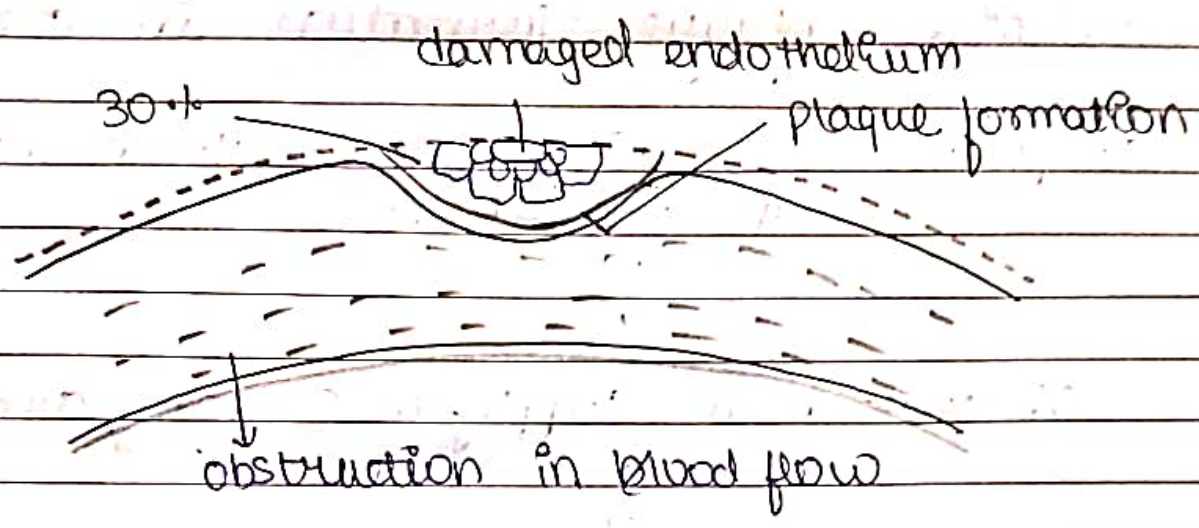 damaged endothelium
30%
plaque formation
obstruction in blood flow